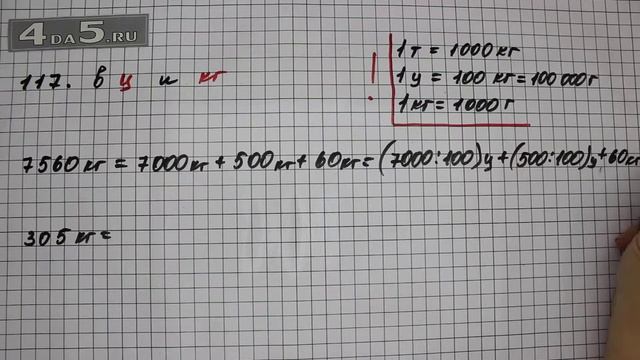 4DA5.RU
117. в ц и кг
1 т = 1000 кг
1 ц = 100 кг = 100 000 г
1 кг = 1000 г
!
7560 кг = 7000 кг + 500 кг + 60 кг = (7000:100)ц + (500:100)ц + 60 кг
305 кг =